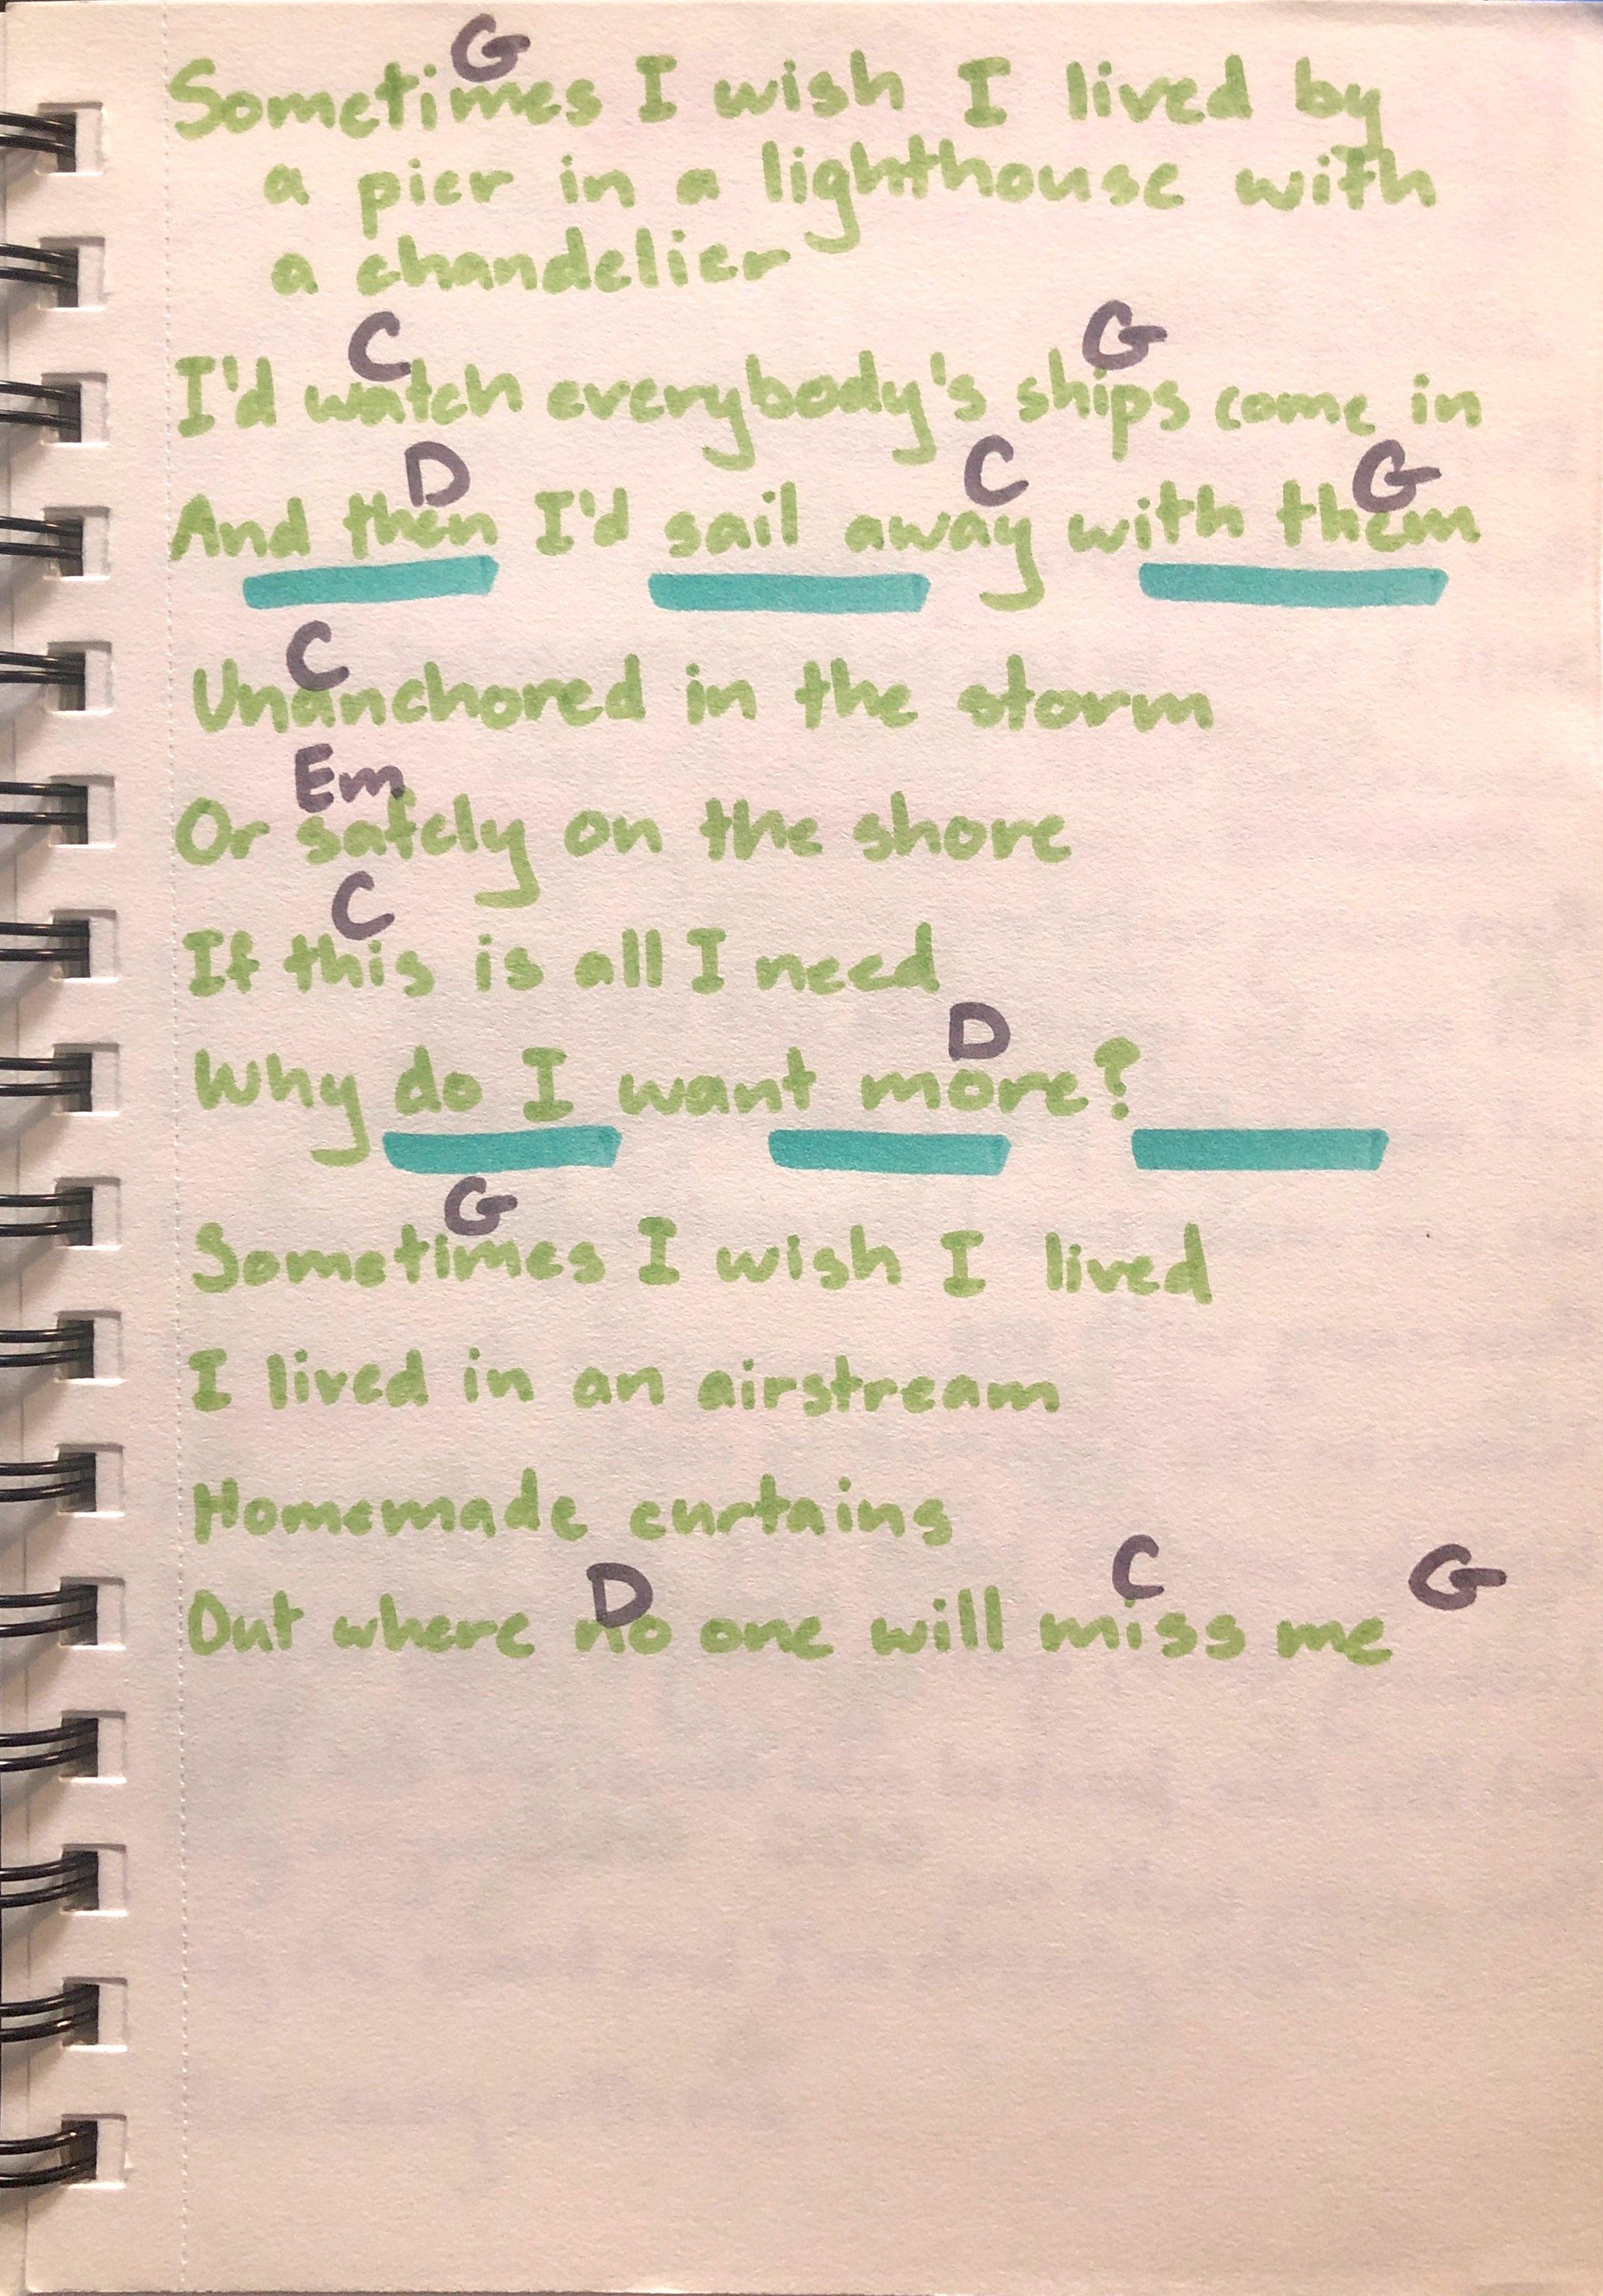 G
Sometimes I wish I lived by
a pier in a lighthouse with
a chandelier
C G
I'd watch everybody's ships come in
D C G
And then I'd sail away with them
C
Unanchored in the storm
Em
Or safely on the shore
C
If this is all I need
D
Why do I want more?
G
Sometimes I wish I lived
I lived in an airstream
Homemade curtains
D C G
Out where no one will miss me